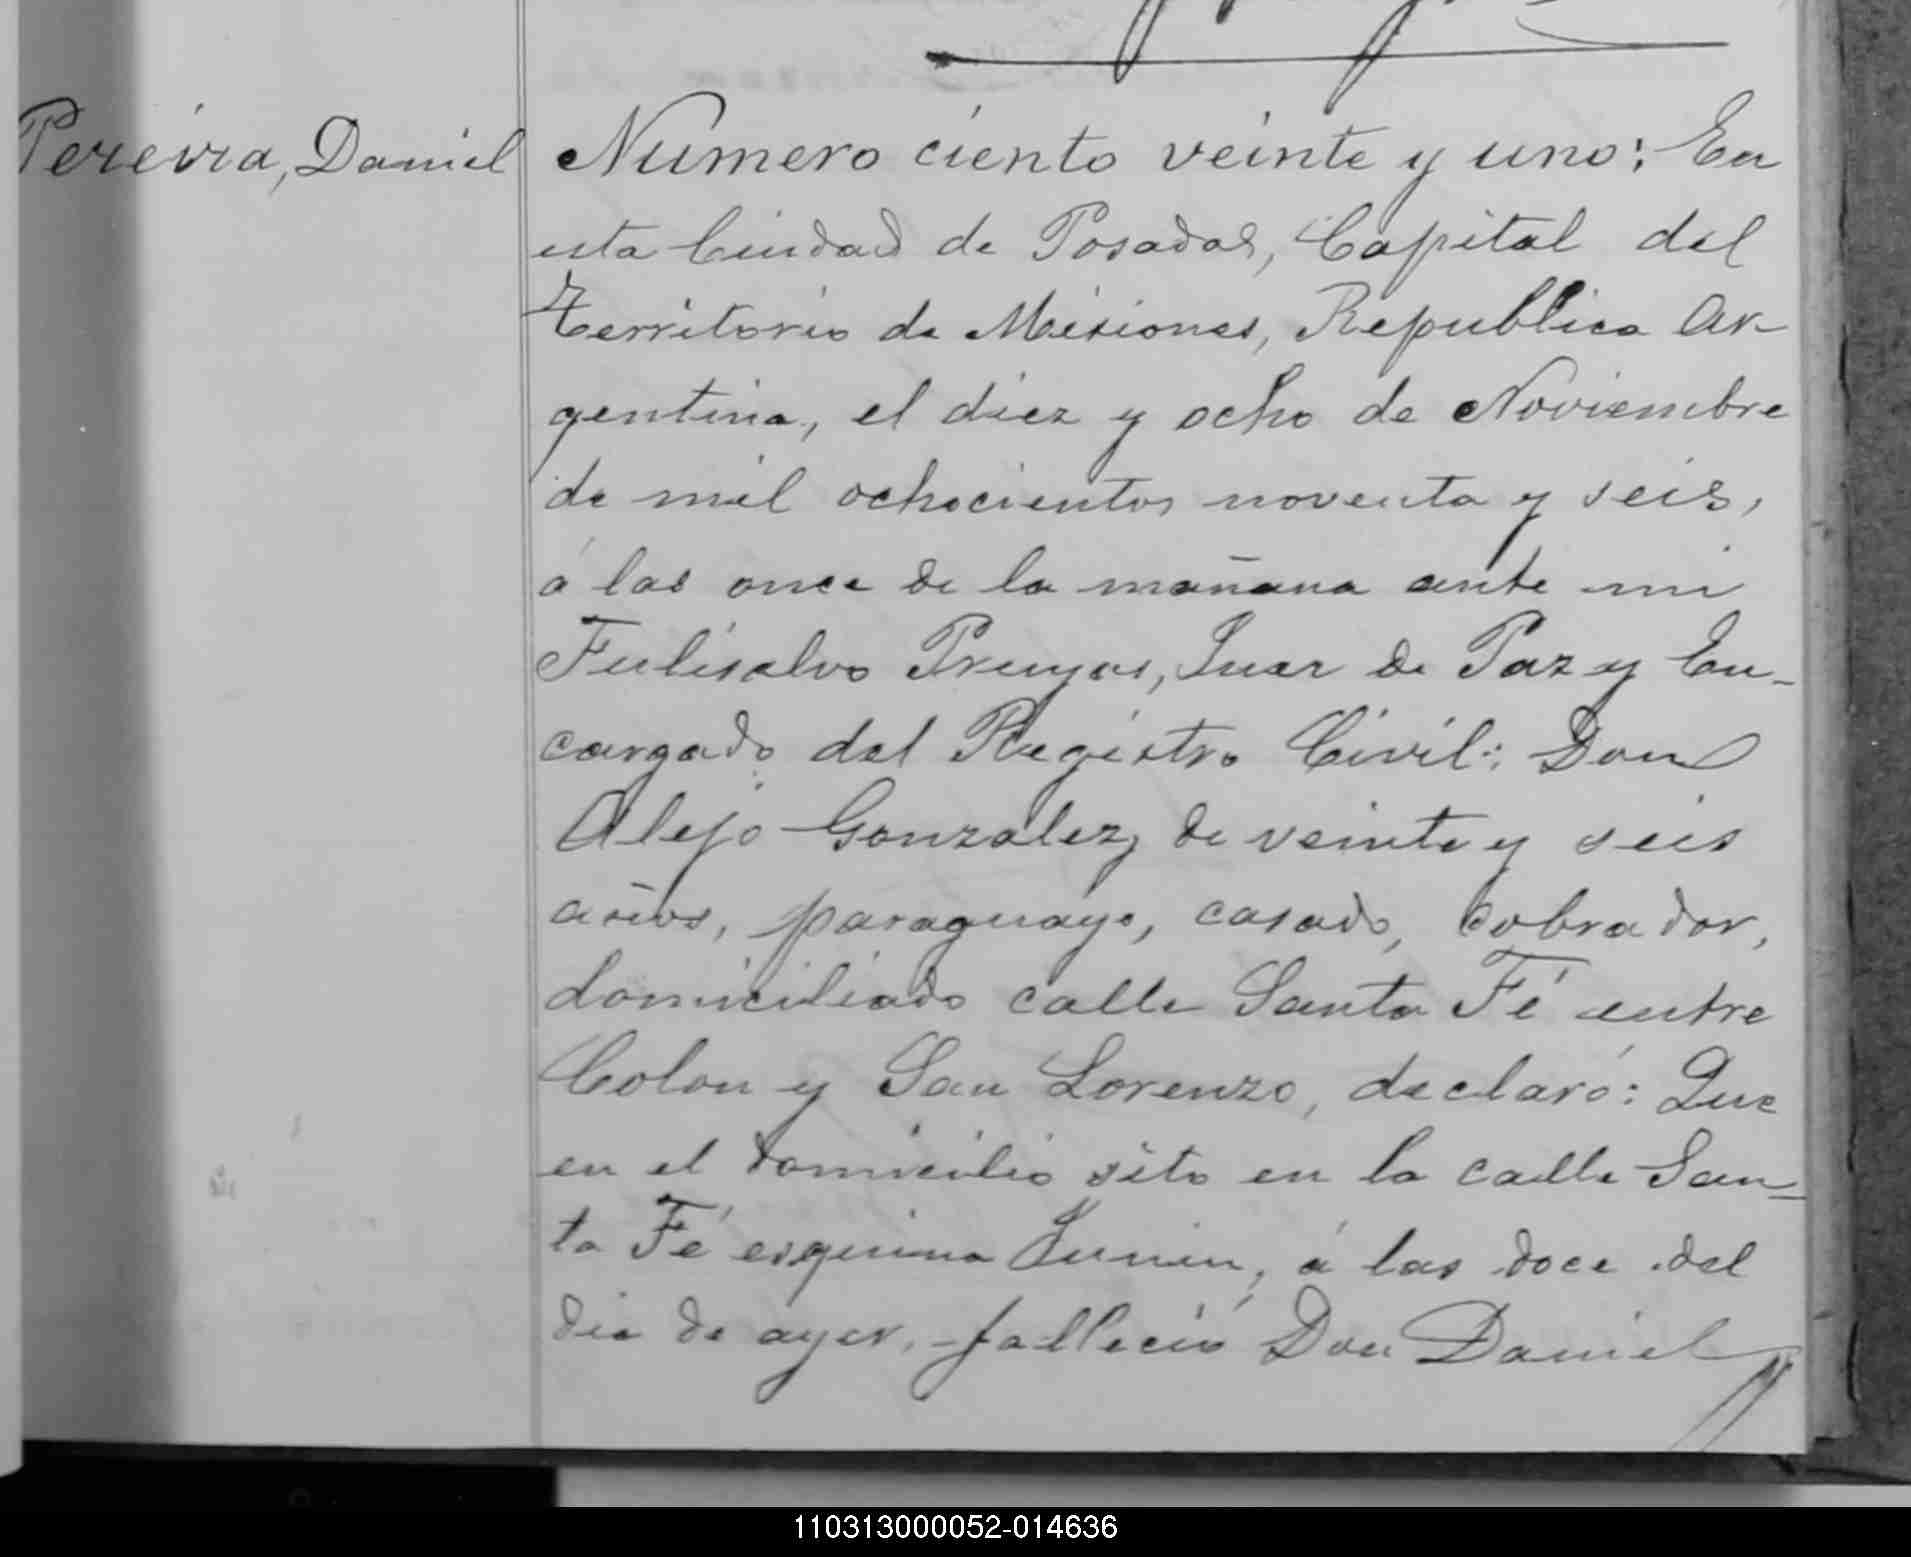 Pereira, Daniel
Numero ciento veinte y uno: En
esta Ciudad de Posadas, Capital del
Territorio de Misiones, Republica Ar-
gentina, el diez y ocho de Noviembre
de mil ochocientos noventa y seis,
á las once de la mañana ante mi
Juez de Paz y En-
cargado del Registro Civil: Don
Alejo Gonzalez, de veinte y seis
años, paraguayo, casado, cobrador,
domiciliado calle Santa Fé entre
Colon y San Lorenzo, declaró: Que
en el domicilio sito en la calle San-
ta Fé esquina Junin, á las doce del
dia de ayer, falleció Don Daniel
110313000052-014636